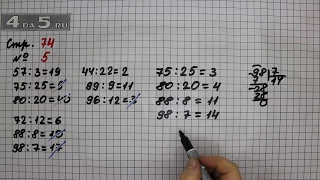 4DA5.RU
Стр. 74
№ 5
57:3=19
75:25=5
80:20=40
72:12=6
88:8=10
98:7=17
44:22=2
89:9=11
96:12=3
75:25=3
80:20=4
88:8=11
98:7=14
98 7
7 14
28
28
0